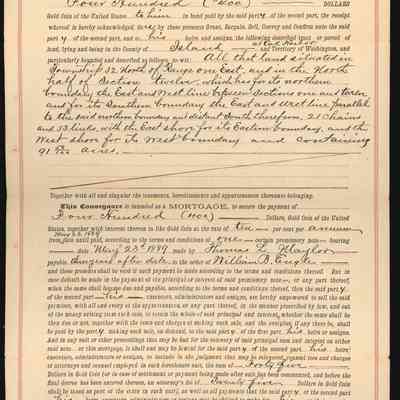 Four Hundred (400) DOLLARS
Gold Coin of the United States to him in hand paid by the said party of the second part, the receipt
whereof is hereby acknowledged, do by these presents Grant, Bargain, Sell, Convey and Confirm unto the said
party of the second part, and to his heirs and assigns, the following described tract or parcel of
land, lying and being in the County of Island and Territory of Washington, and
particularly bounded and described as follows, to wit: All that land situated in
Township 32 North of Range one East, and in the North
half of Section twelve, which has for its northern
boundary the East and West line between sections one and twelve
and for its Southern boundary the East and West line parallel
to the said northern boundary and distant South therefrom 21 Chains
and 53 links, with the East shore for its Eastern boundary, and the
West shore for its West boundary and containing
91 acres.
Together with all and singular the tenements, hereditaments and appurtenances thereunto belonging.
This Conveyance is intended as a MORTGAGE, to secure the payment of
Four Hundred (400) Dollars, Gold Coin of the United
States, together with interest thereon in like Gold Coin at the rate of ten per cent per annum
May 23 1889
from date until paid, according to the terms and conditions of one certain promissory note bearing
date May 23rd 1889 made by Thomas L.
payable after date to the order of William B. Engle
and these presents shall be void if such payment be made according to the terms and conditions thereof. But in
case default be made in the payment of the principal or interest of said promissory note, or any part thereof,
when the same shall become due and payable, according to the terms and conditions thereof, then the said party
of the second part his executors, administrators and assigns, are hereby empowered to sell the said
premises, with all and every of the appurtenances, or any part thereof, in the manner prescribed by law, and out
of the money arising from such sale, to retain the whole of said principal and interest, whether the same shall be
then due or not, together with the costs and charges of making such sale, and the overplus, if any there be, shall
be paid by the party making such sale, on demand, to the said party of the first part, his heirs or assigns.
And in any suit or other proceedings that may be had for the recovery of said principal sum and interest on either
said note or this mortgage, it shall and may be lawful for the said party of the second part, his heirs,
executors, administrators or assigns, to include in the judgment that may be recovered counsel fees and charges
of attorneys and counsel employed in such foreclosure suit, the sum of Forty five
Dollars in Gold Coin (or in case of settlement or payment being made after suit has been commenced, and before the
final decree has been entered therein, an attorney's fee of Twenty five Dollars in like
Gold Coin shall be taxed as part of the costs in such suit), as well as all payments that the said party of the second